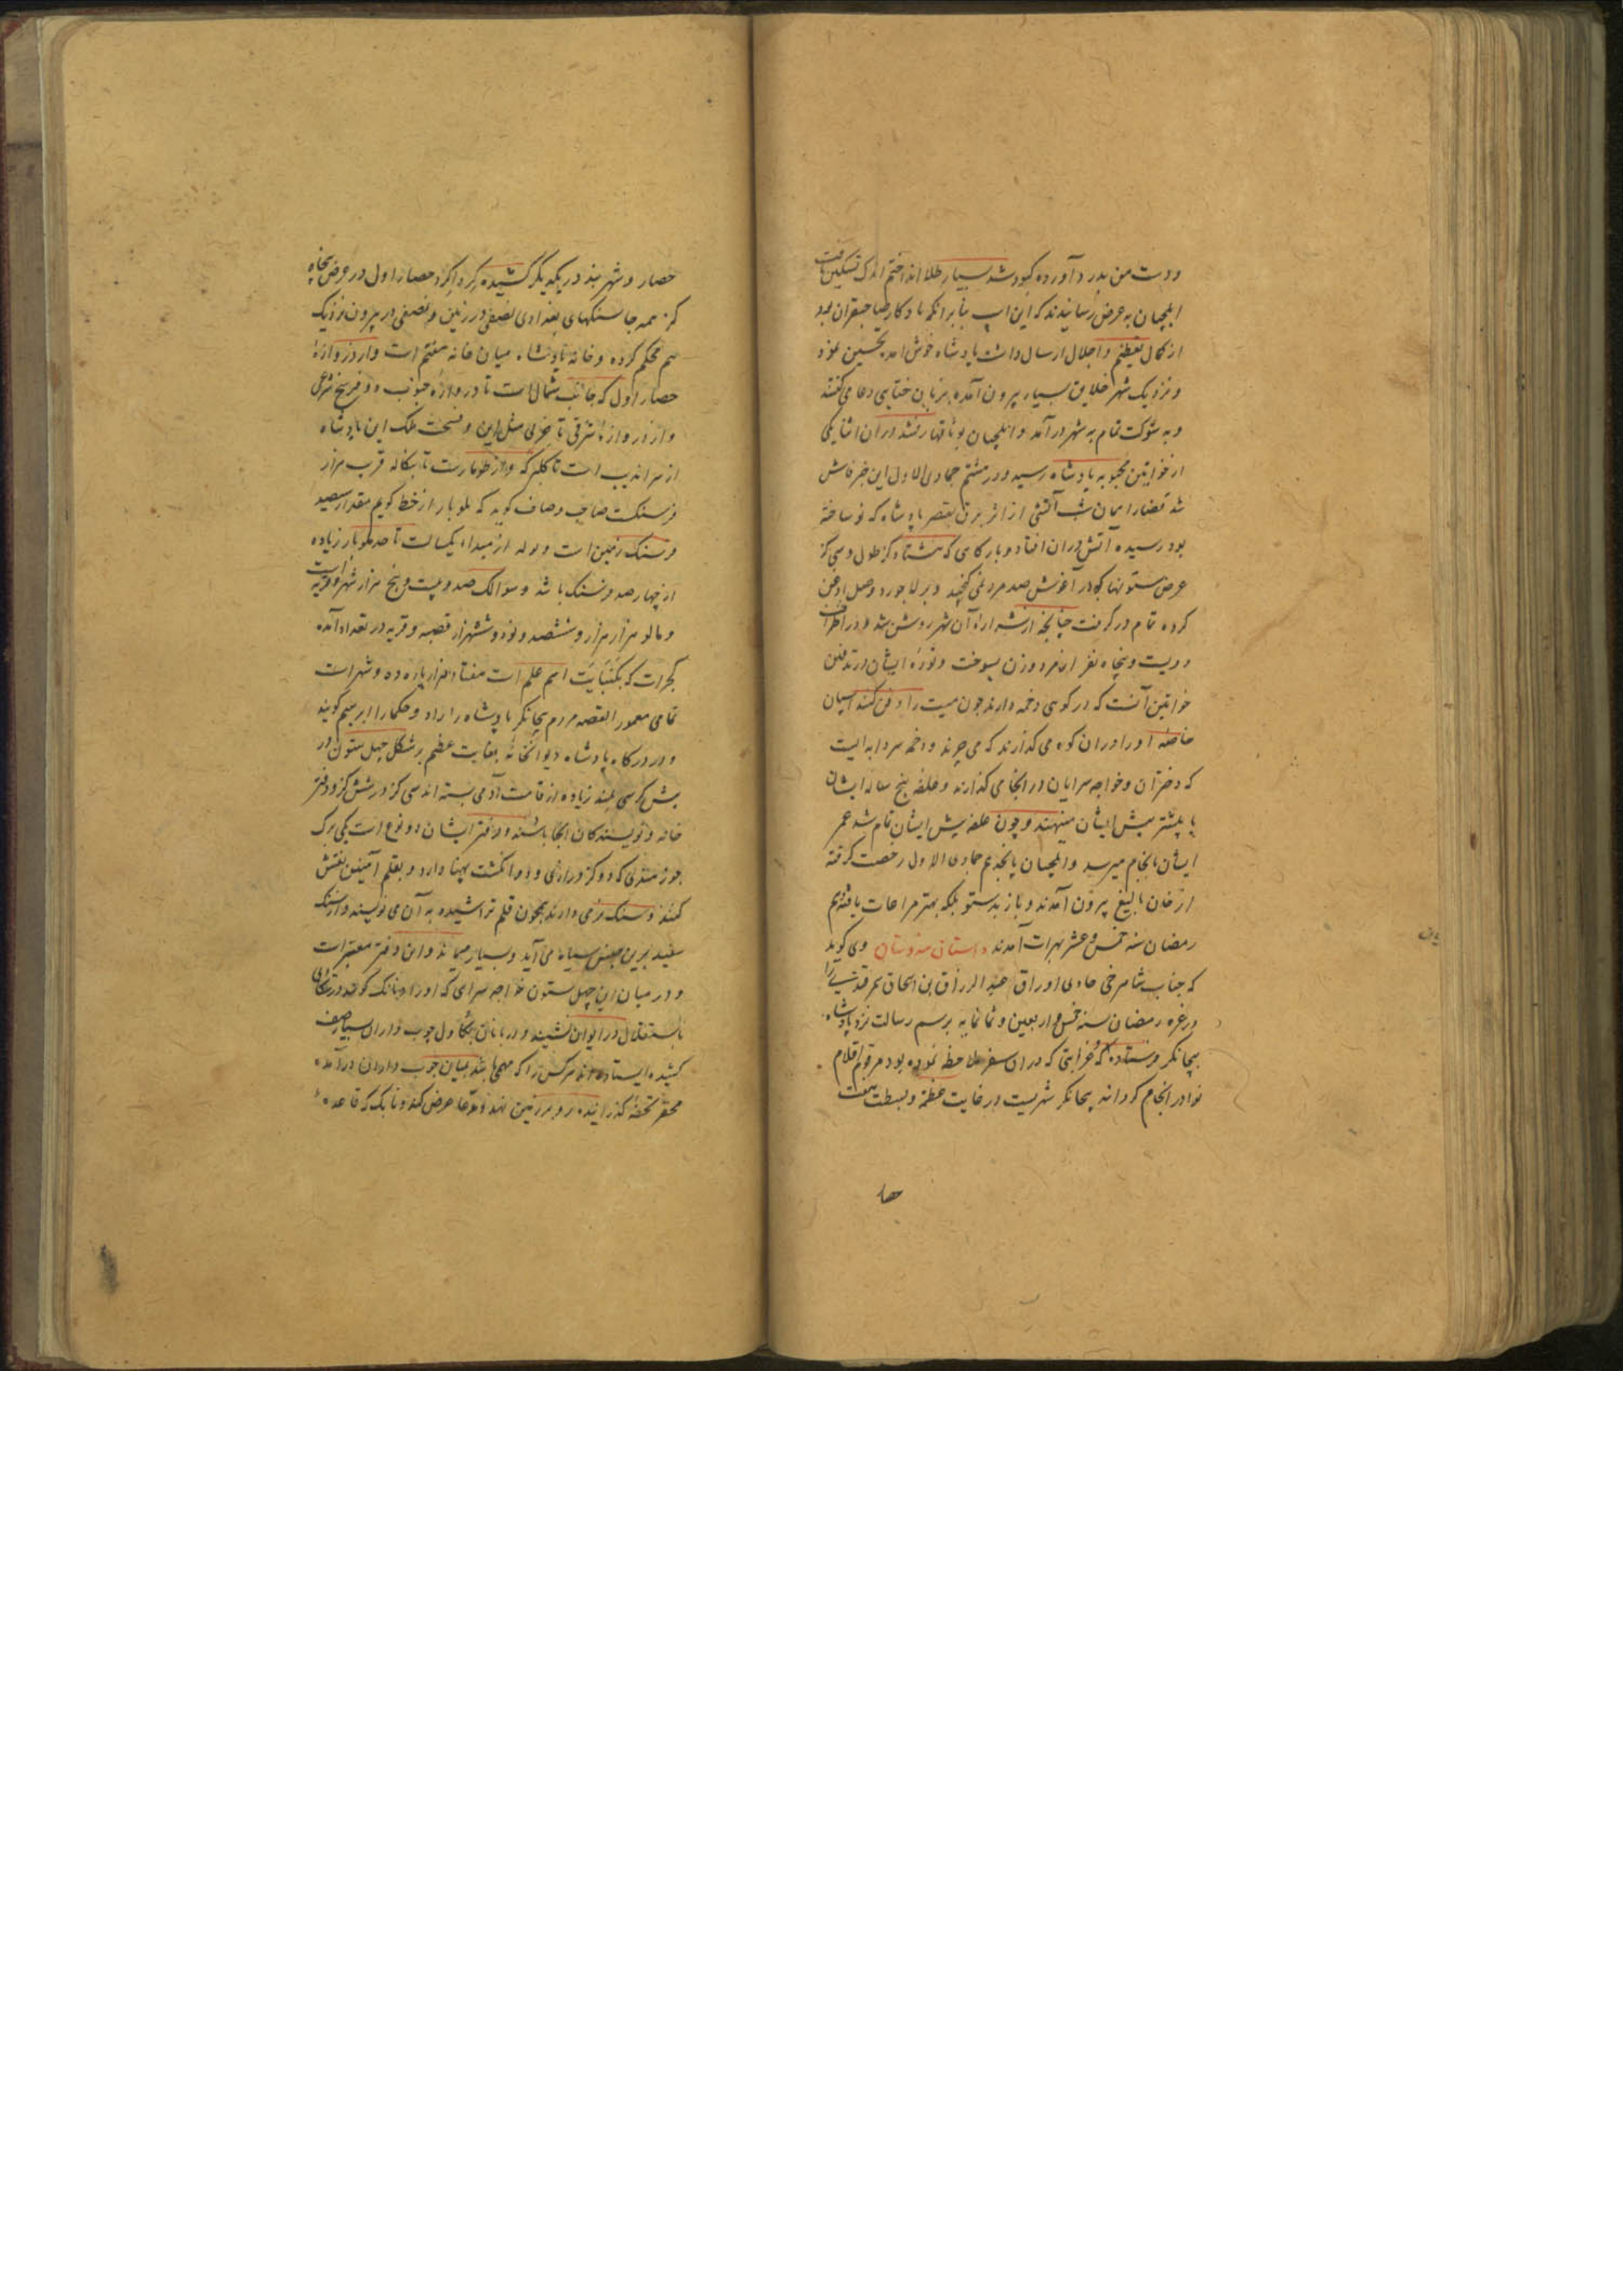 ودست من بدرد آورده کبود شد بسیار طلا انداختم اندک تسکین یافت
ایلچیان به عرض رسانیدند که این اسپ بنابر انکه یادکار صاحبقران بود
از کمال تعظیم و اجلال ارسال داشت پادشاه خوش آمد تحسین نمود
و نزدیک شهر خلایق بسیار بیرون آمده بزبان ختایی دعا می کفتند
و به شوکت تمام به شهر درآمد و ایلچیان بوثاقها رفتند در آن اثنا یکی
از خواتین محبوبه پادشاه رسید و در هشتم جمادی الاول این خبر فاش
شد قضارا همان شب آتشی از اثر برق بقصر پادشاه که نو ساخته
بود رسیده آتش دران افتاد و بارکاهی که هشتاد کز طول و سی کز
عرض ستونها که در آغوش صد مرد نمی کنجید و بر لاجورد و حل روغن
کرده تمام در کرفت چنانچه از شراره آن شهر روشن شد و در اطراف
دویست و پنجاه نفر از مرد و زن بسوخت و توره ایشان در تدفین
خواتین آنست که در کوهی دخمه دارند چون میت را دفن کنند اسپان
خاصه او را در ان کوه می کذارند که می چرند و دخمه سردابه ایست
که دختران و خواجه سرایان در انجا می کذارند و علفه پنج ساله ایشان
یا بیشتر پیش ایشان مینهند و چون علفه پیش ایشان تمام شد عمر
ایشان بانجام میرسد و ایلچیان پانجدهم جمادی الاول رخصت کرفته
از خان بالیغ بیرون آمدند و باز بدستور بلکه بهتر مراعات یافته دهم
رمضان سنه خمس و عشر بهرات آمدند داستان هندوستان وی کوید
که جناب شاهرخی حاوی اوراق عبد الرزاق بن اسحاق سمرقندی را
در غره رمضان سنه خمس و اربعین و ثمانمایه برسم رسالت نزد پادشاه
بیجانکر فرستاده که و غرابتی که در ان سفر ملاحظه نموده بود مرقوم اقلام
نوادر انجام کردانید بیجانکر شهریست در غایت عظمة و بسطت هفت
حصا
حصار و شهربند در یکدیکر کشیده کرداکرد حصار اول در عرض پنجاه
کز همه جا سنکهای بغدادی نصفی در زمین و نصفی در بیرون نزدیک
هم محکم کرده و خانه پادشاه میان خانه هفتم است و از دروازهٔ
حصار اول که جانب شمال است تا دروازه جنوب دو فرسخ شرعی
و از دروازه شرقی تا غربی مثل این و فسحت ملک این پادشاه
از سراندیب است تا کلبرکه و از طول عمارت تا بنکاله قرب هزار
فرسنکست صاحب وصاف کوید که ملوبار از خط کویم مقدار سیصد
فرسنک زمین است و طول از مبداء یکسالت تا حد ملوبار زیاده
از چهارصد فرسنک باشد و سوالک صد و بیست و پنج هزار شهر و قریه است
و مالو هزار هزار و ششصد و نود و شش هزار قصبه و قریه در تعداد آمده
کجرات که بکنبایت اسم علم است هفتاد هزار پاره ده و شهر است
تمامی معمور القصه مردم بیجانکر پادشاه را راد و حکما را ابرهیم کویند
و در درکاه پادشاه دیوانخانهٔ بغایت عظیم بر شکل چهل ستون در
پیش کرسی بلند زیاده از قامت آدمی بسته اند سی کز در شش کز و دفتر
خانه و نویسندکان انجا باشند و دفتر ایشان دو نوع است یکی برک
جوز هندی که دو کز درازی و دو انکشت پهنا دارد و بقلم آهنین نقش
کنند و سنک نرمی دارند همچون قلم تراشیده به آن می نویسند و از سنک
سفید برین جنس سیاه می آید و بسیار میماند و این دفتر معتبر است
و در میان این چهل ستون خواجه سرای که او را دنایک کویند در تنهایی
باستقلال در ایوان نشیند و دربانان چکاول چوب داران بسیار صف
کشیده ایستاده اند هر کس را که مهمی باشد میان چوب داران درآمده
محقر تحفهٔ کذرانیده رو بر زمین نهد و مدعا عرض کند دنایک که قاعده